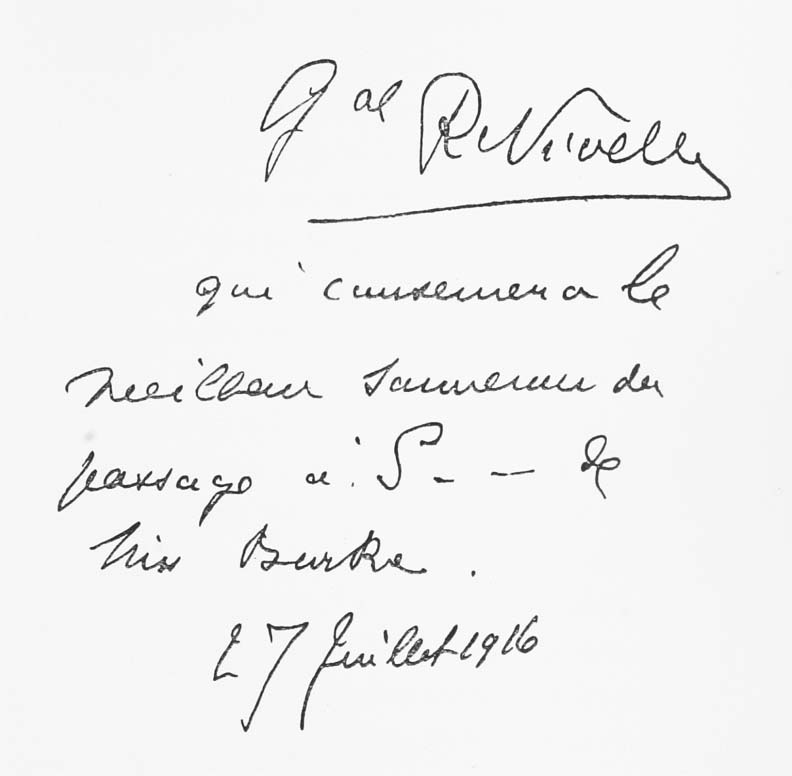 Gal R. Nivelle
qui conservera le
meilleur souvenir du
passage à S - - de
Miss Burke.
27 Juillet 1916